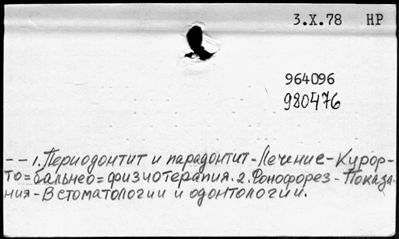 3.X.78 НР
964096
980476
-- 1. Периодонтит и парадонтит - Лечение - Курор-
то = бальнео = физиотерапия. 2. Фонофорез - Показа-
ния - В стоматологии и одонтологии.